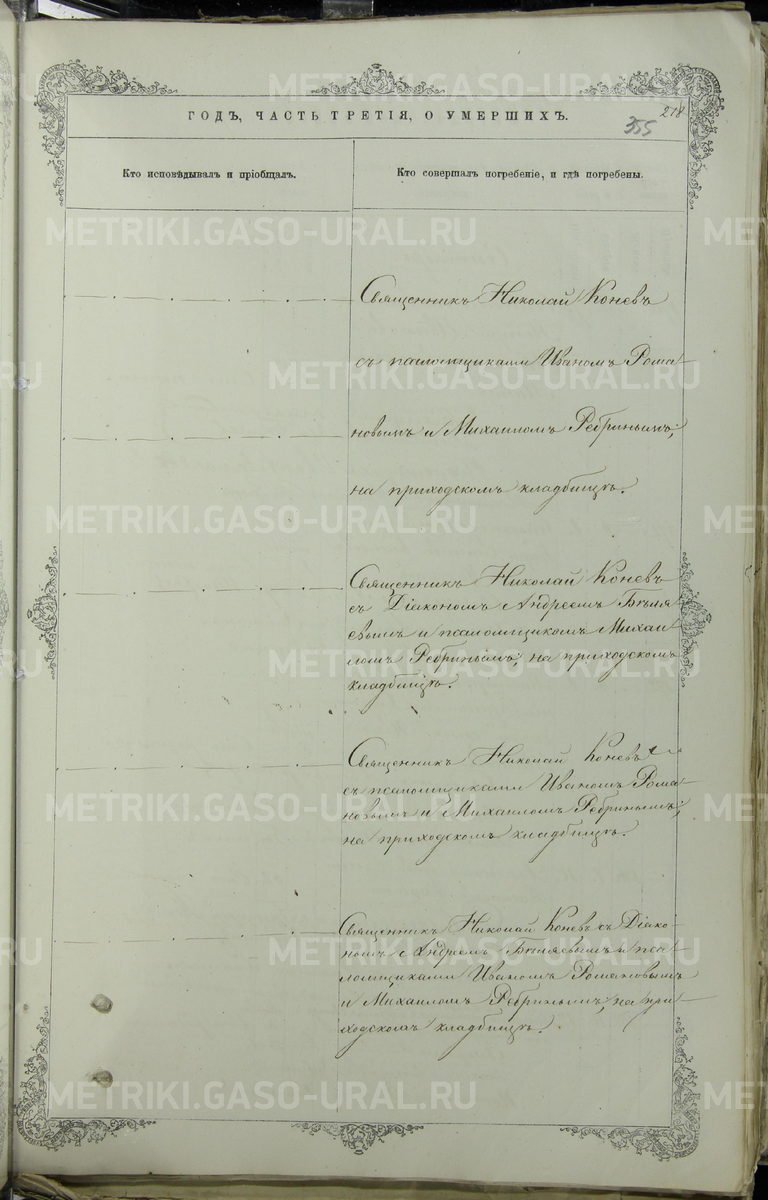 ГОДЪ, ЧАСТЬ ТРЕТІЯ, О УМЕРШИХЪ.
355
218
Кто исповѣдывалъ и пріобщалъ.
Кто совершалъ погребеніе, и гдѣ погребены.
Священникъ Николай Коневъ
съ псаломщиками Иваномъ Рома
новымъ и Михаиломъ Ребринымъ;
на приходскомъ кладбищѣ.
Священникъ Николай Коневъ
съ Діакономъ Андреемъ Бѣля
евымъ и псаломщикомъ Михаи
ломъ Ребринымъ, на приходскомъ
кладбищѣ.
Священникъ Николай Коневъ
съ псаломщиками Иваномъ Рома
новымъ и Михаиломъ Ребринымъ;
на приходскомъ кладбищѣ.
Священникъ Николай Коневъ съ Діако-
номъ Андреемъ Бѣляевымъ и пса
ломщиками Иваномъ Романовымъ
и Михаиломъ Ребринымъ, на при
ходскомъ кладбищѣ.
METRIKI.GASO-URAL.RU